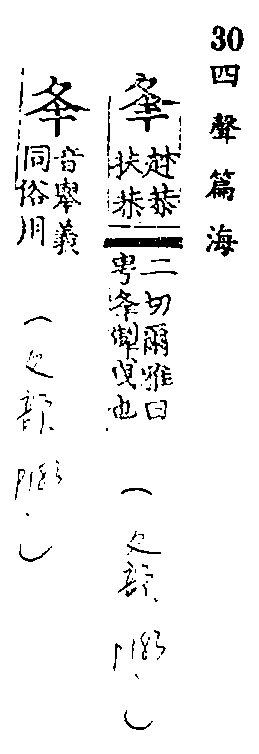 30 四聲篇海
夆
赴恭
扶恭
二切爾雅曰
甹夆掣曳也
(夂部 P183.)
音舉義
同俗用
(夂部 P183.)